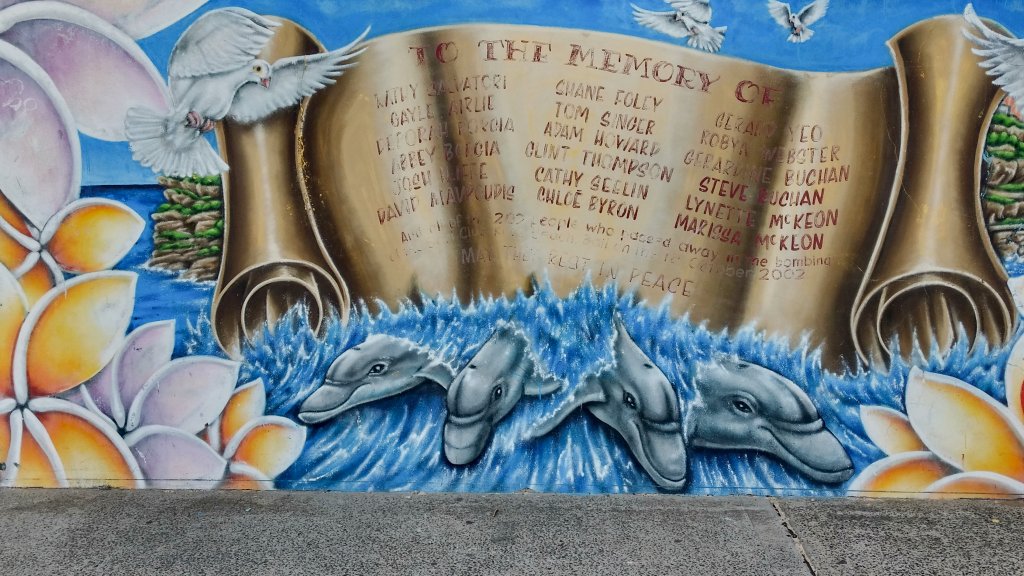 TO THE MEMORY OF
KATHY SALVATORI
GAYLE AIRLIE
DEBORAH
ABBEY BORGIA
JOSH
DAVID MAVROUDIS
SHANE FOLEY
TOM SINGER
ADAM HOWARD
CLINT THOMPSON
CATHY SEELIN
CHLOE BYRON
GERARD YEO
ROBYN WEBSTER
GERARDINE BUCHAN
STEVE BUCHAN
LYNETTE McKEON
MARISSA McKEON
And all of the 202 people who passed away in the bombing
Beach, Bali on the 12th October 2002
MAY THEY REST IN PEACE